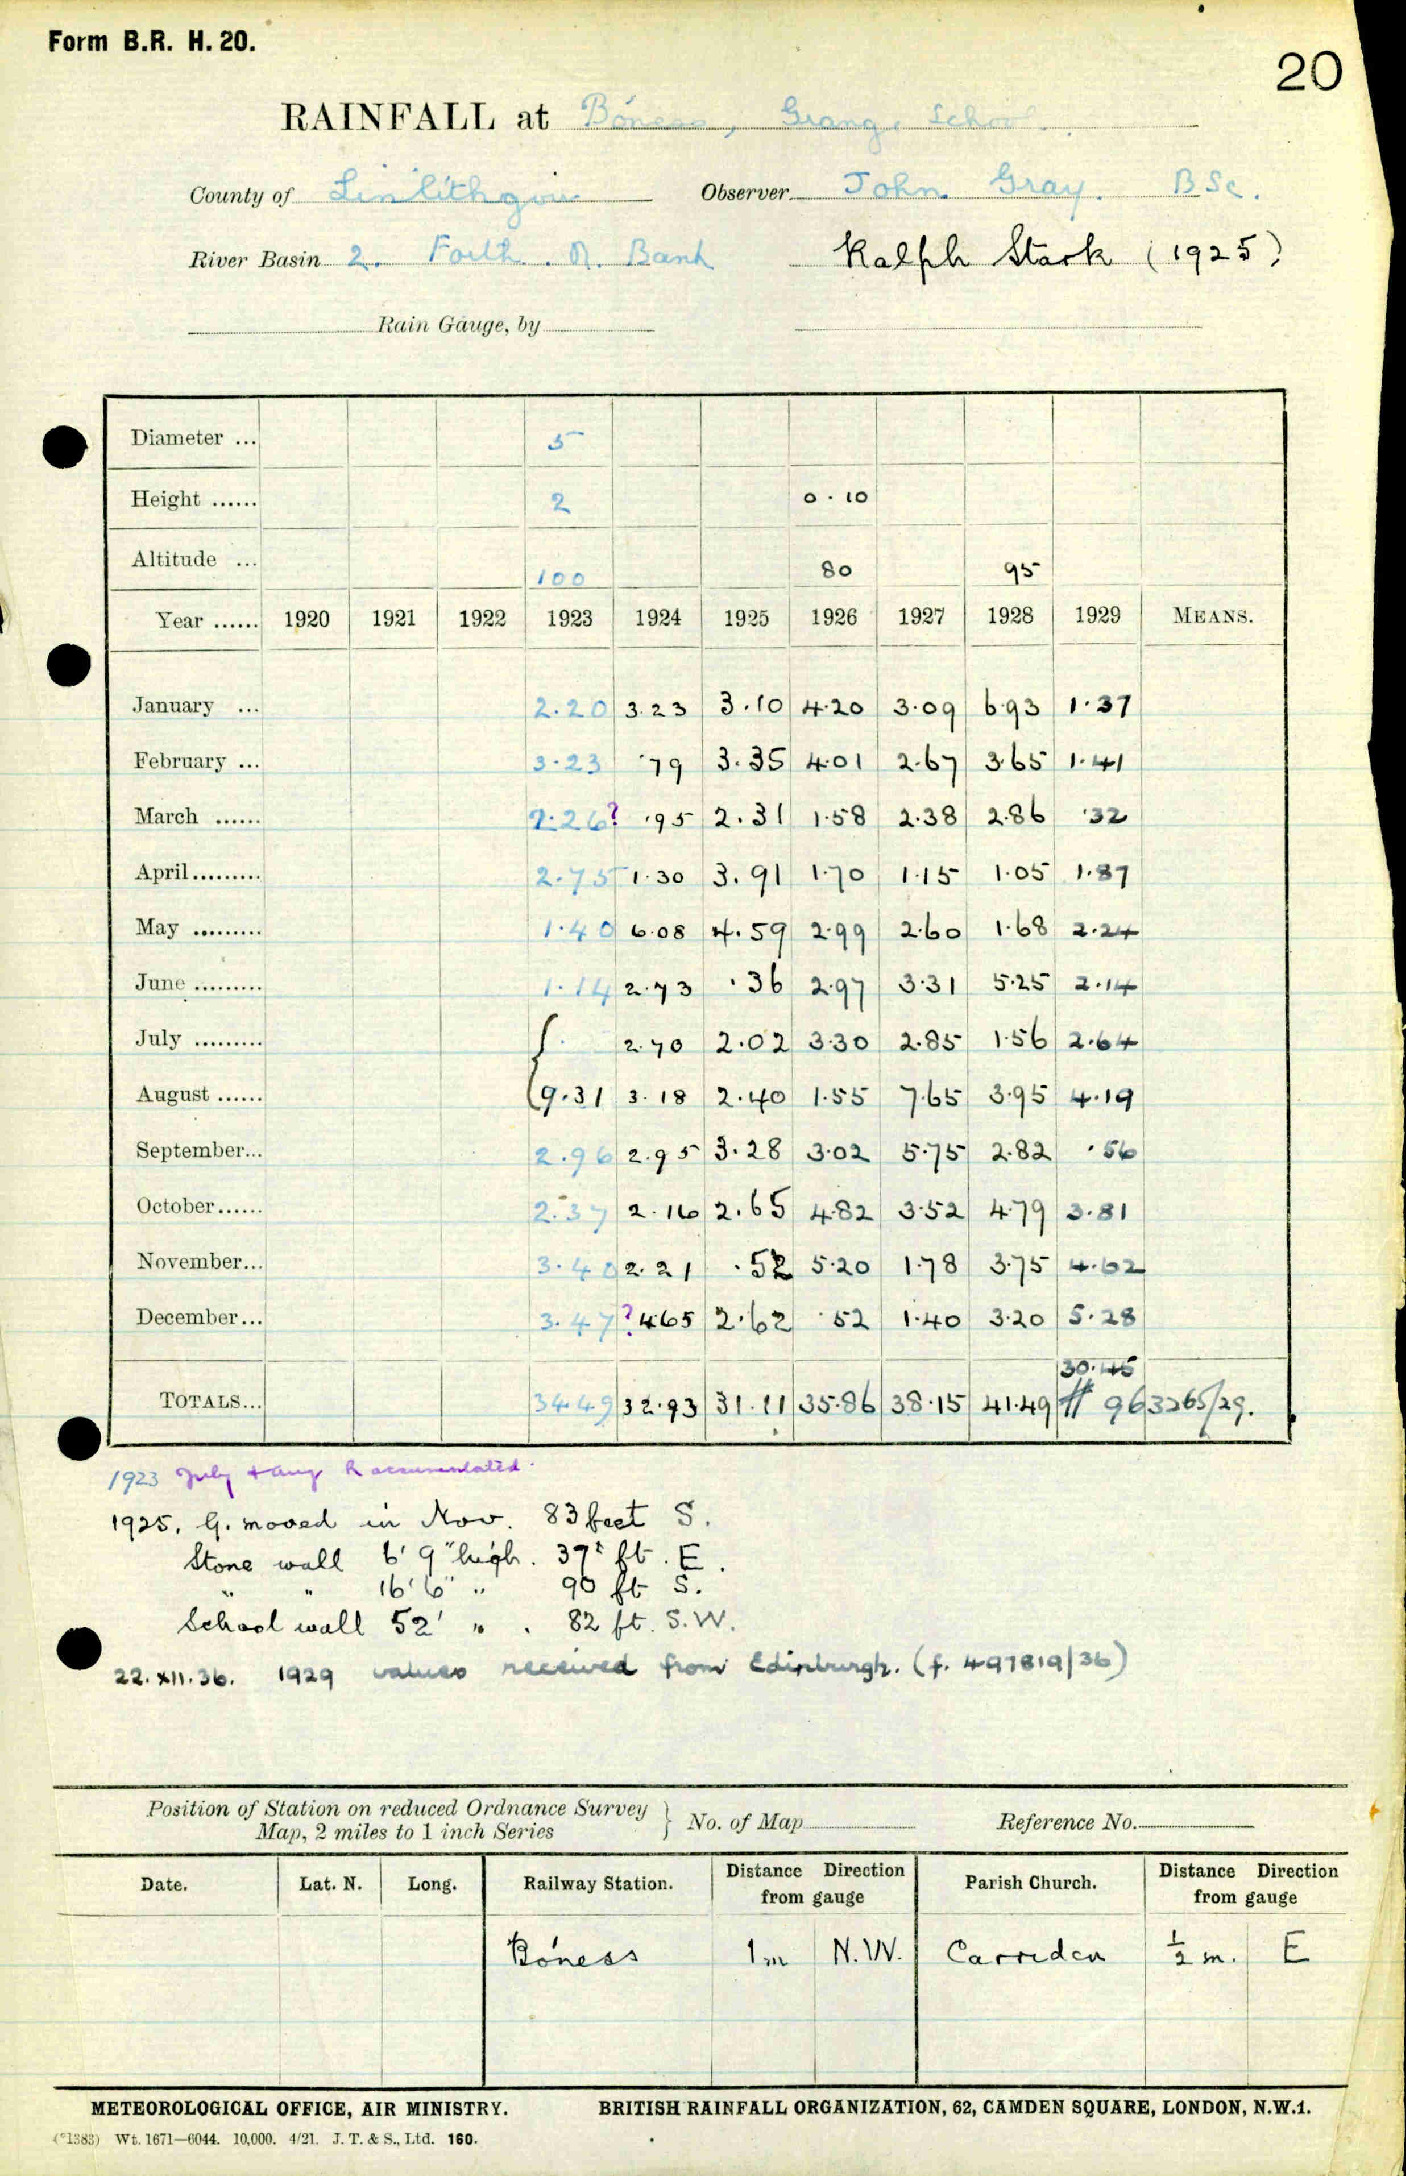 Form B.R. H. 20.
20
RAINFALL at Bo'ness, Grange School.
County of Linlithgow Observer John Gray. BSc.
River Basin 2. Forth. R. Bank Ralph Stark (1925)
Rain Gauge, by
Diameter ... 5
Height ...... 2 0.10
Altitude ... 100 80 95
Year ...... 1920 1921 1922 1923 1924 1925 1926 1927 1928 1929 MEANS.
January ... 2.20 3.23 3.10 4.20 3.09 6.93 1.37
February ... 3.23 .79 3.35 4.01 2.67 3.65 1.41
March ...... 2.26? .95 2.31 1.58 2.38 2.86 .32
April ......... 2.75 1.30 3.91 1.70 1.15 1.05 1.87
May ......... 1.40 6.08 4.59 2.99 2.60 1.68 2.24
June ......... 1.14 2.73 .36 2.97 3.31 5.25 2.14
July ......... { 2.70 2.02 3.30 2.85 1.56 2.64
August ...... 9.31 3.18 2.40 1.55 7.65 3.95 4.19
September... 2.96 2.95 3.28 3.02 5.75 2.82 .56
October...... 2.37 2.16 2.65 4.82 3.52 4.79 3.81
November... 3.40 2.21 .52 5.20 1.78 3.75 4.62
December... 3.47 ?4.65 2.62 .52 1.40 3.20 5.28
30.45
TOTALS... 34.49 32.93 31.11 35.86 38.15 41.49 # 963265/29.
1923 July & Aug R accumulated.
1925. G. moved in Nov. 83 feet S.
Stone wall 6' 9" high. 37 ft. E.
" " 16' 6" " 90 ft S.
School wall 52' " . 82 ft. S.W.
22.XII.36. 1929 values received from Edinburgh. (f. 497819/36)
Position of Station on reduced Ordnance Survey Map, 2 miles to 1 inch Series } No. of Map Reference No.
Date. Lat. N. Long. Railway Station. Distance Direction from gauge Parish Church. Distance Direction from gauge
Bo'ness 1m N.W. Carriden ½ m. E
METEOROLOGICAL OFFICE, AIR MINISTRY. BRITISH RAINFALL ORGANIZATION, 62, CAMDEN SQUARE, LONDON, N.W.1.
(*1383) Wt. 1671—6044. 10,000. 4/21. J. T. & S., Ltd. 160.